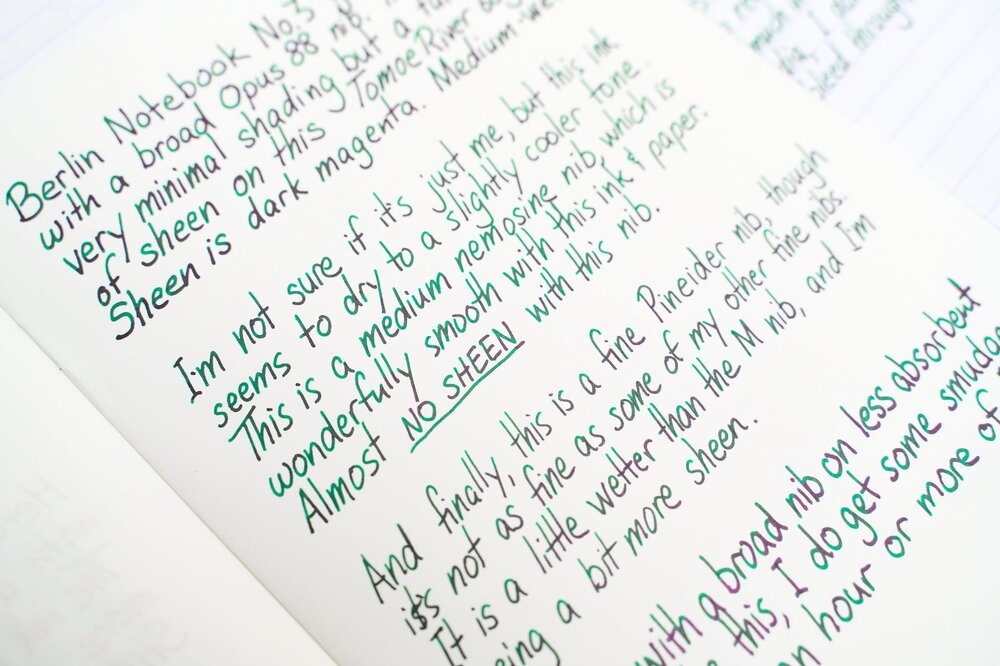 Berlin Notebook No.3
with a broad Opus 88 nib.
very minimal shading but a
of sheen on this Tomoe River
Sheen is dark magenta. Medium-we
I'm not sure if it's just me, but this ink
seems to dry to a slightly cooler tone.
This is a medium nemosine nib, which is
wonderfully smooth with this ink & paper.
Almost NO SHEEN with this nib.
And finally, this is a fine Pineider nib, though
it's not as fine as some of my other fine nibs.
It is a little wetter than the M nib, and I'm
eing a bit more sheen.
with a broad nib on less absorbent
this, I do get some smudg
hour or more of
much